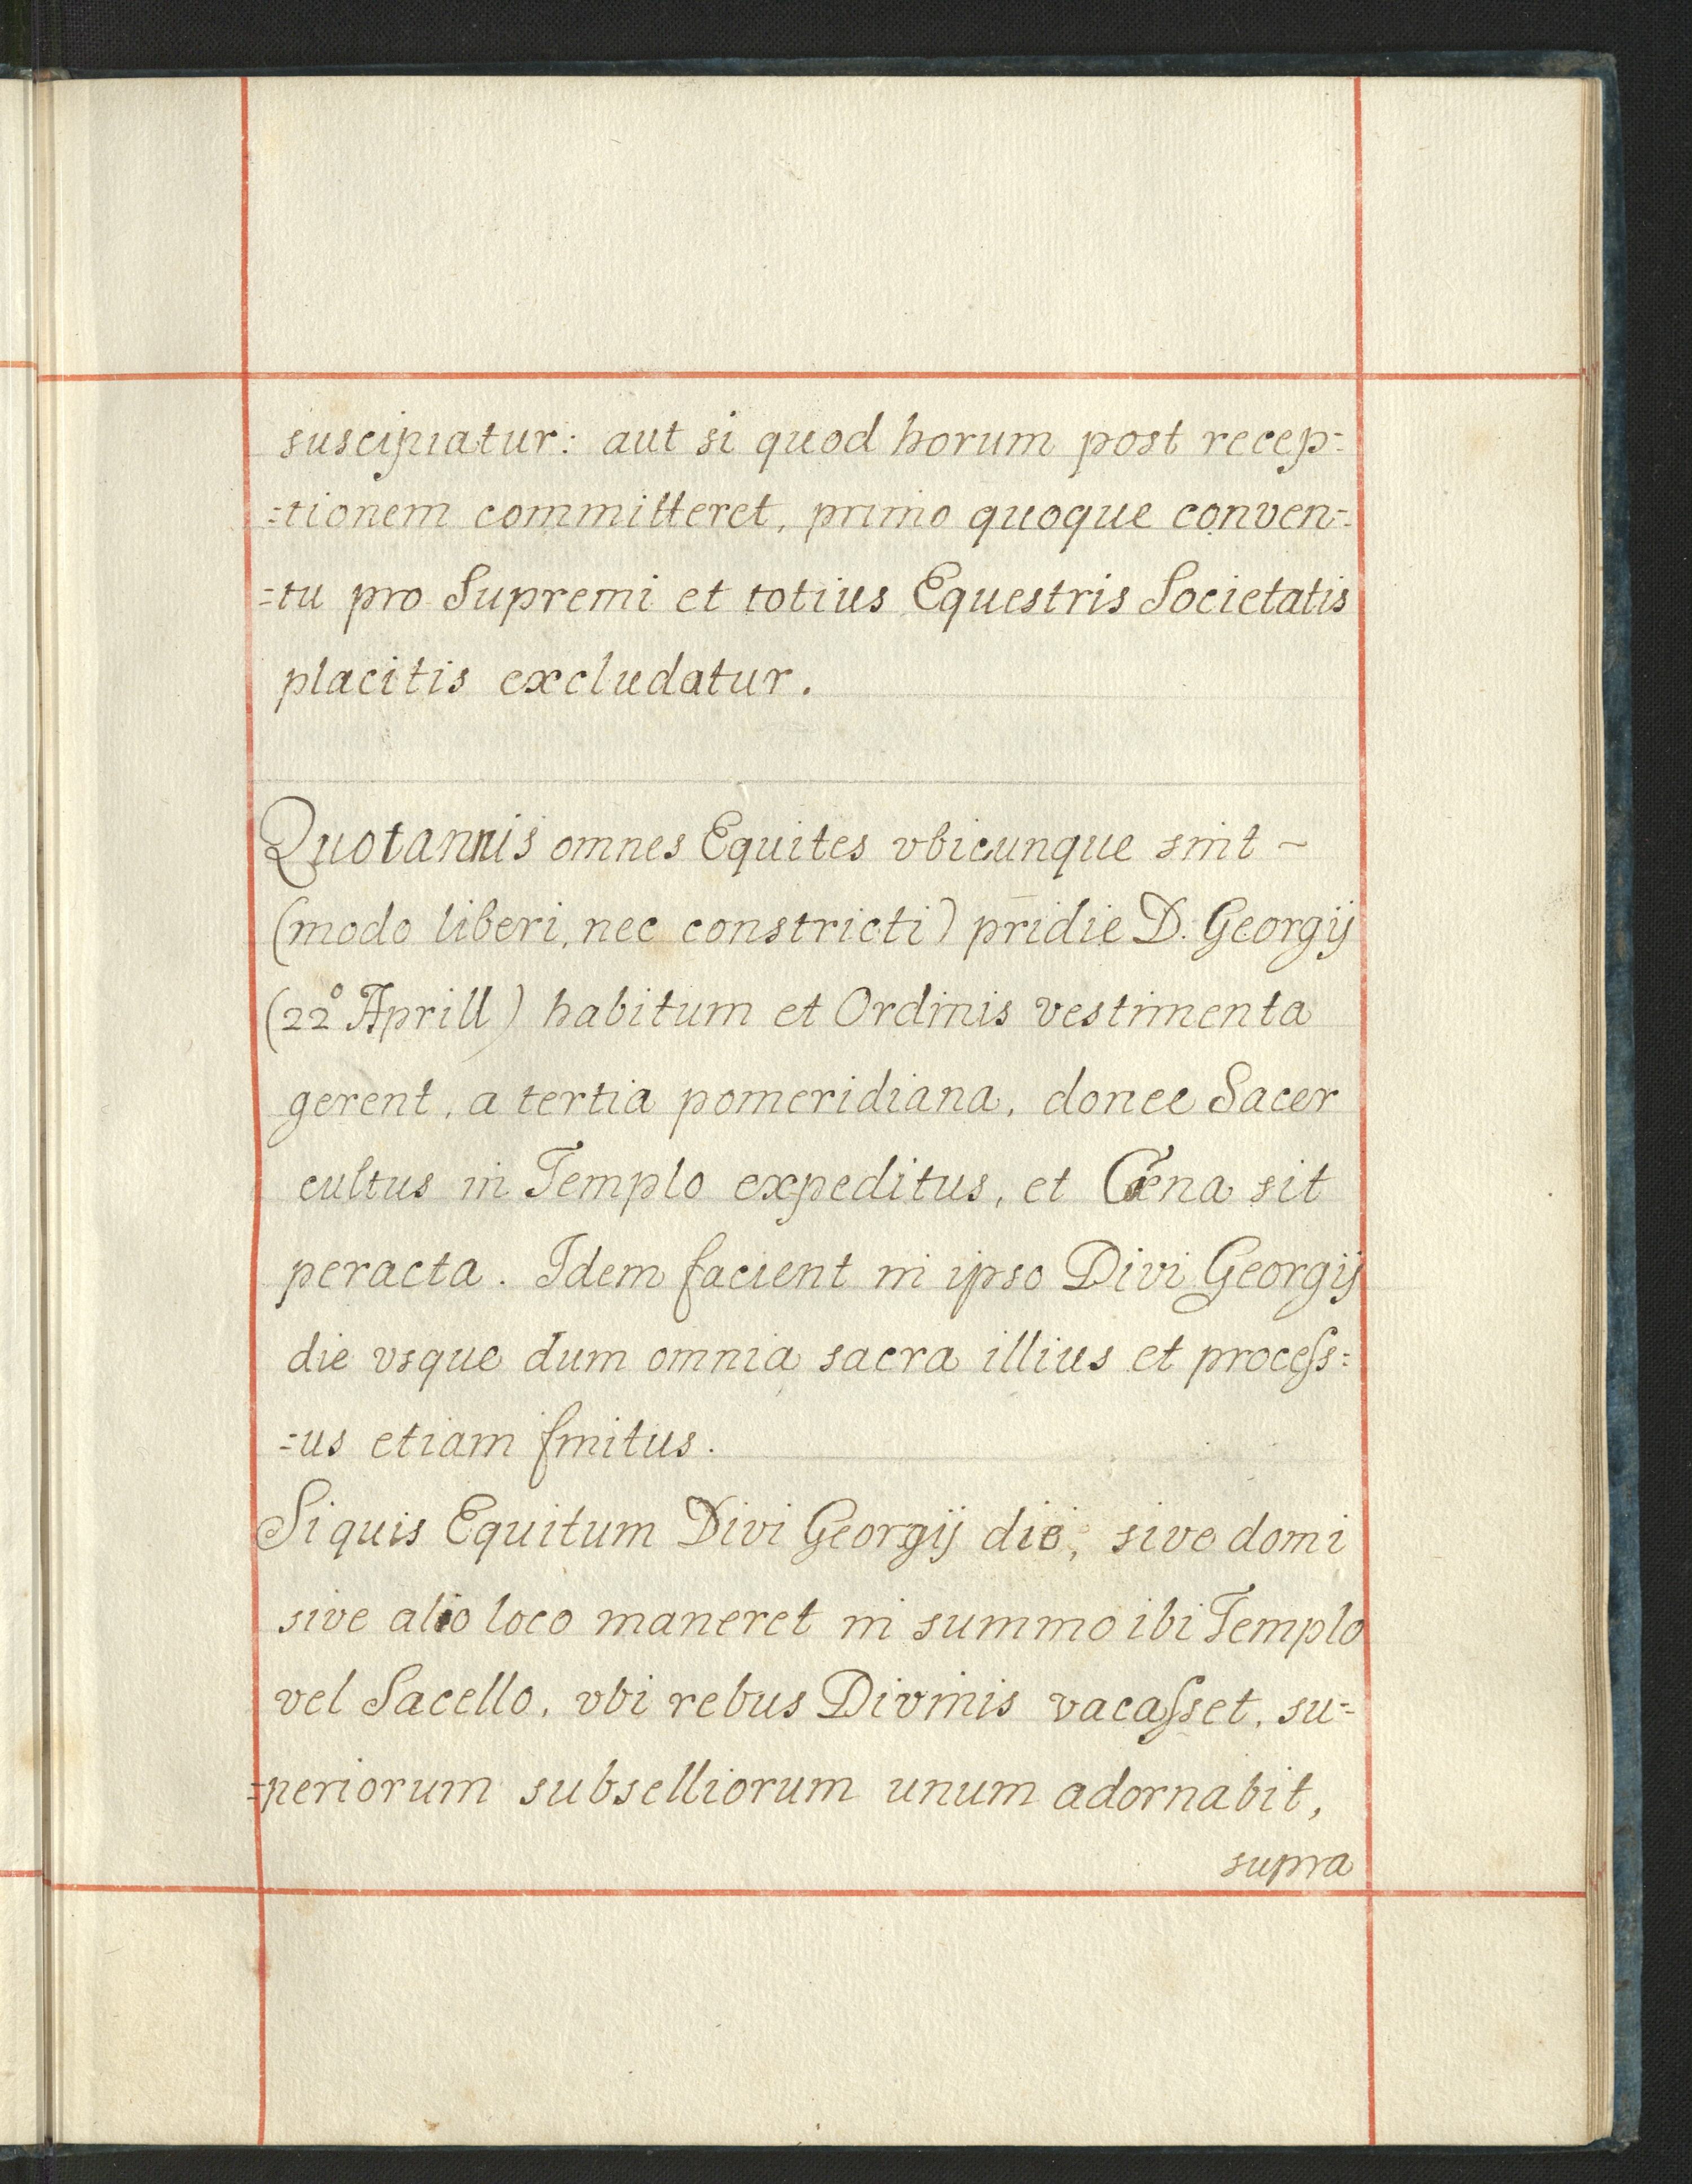 suscipiatur: aut si quod horum post recep=
=tionem committeret, primo quoque conven=
=tu pro Supremi et totius Equestris Societatis
placitis excludatur.
Quotannis omnes Equites vbicunque sint ~
(modo liberi, nec constricti) pr̄idie D. Georgij
(22° Aprill) habitum et Ordinis vestimenta
gerent, a tertia pomeridiana, donec Sacer
cultus in Templo expeditus, et Cœna sit
peracta. Idem facient in ipso Divi Georgij
die vsque dum omnia sacra illius et proceſs=
=us etiam finitus.
Siquis Equitum Divi Georgij die, sive domi
sive alio loco maneret in summo ibi Templo
vel Sacello, vbi rebus Divinis vacaſset, su=
=periorum subselliorum unum adornabit,
supra